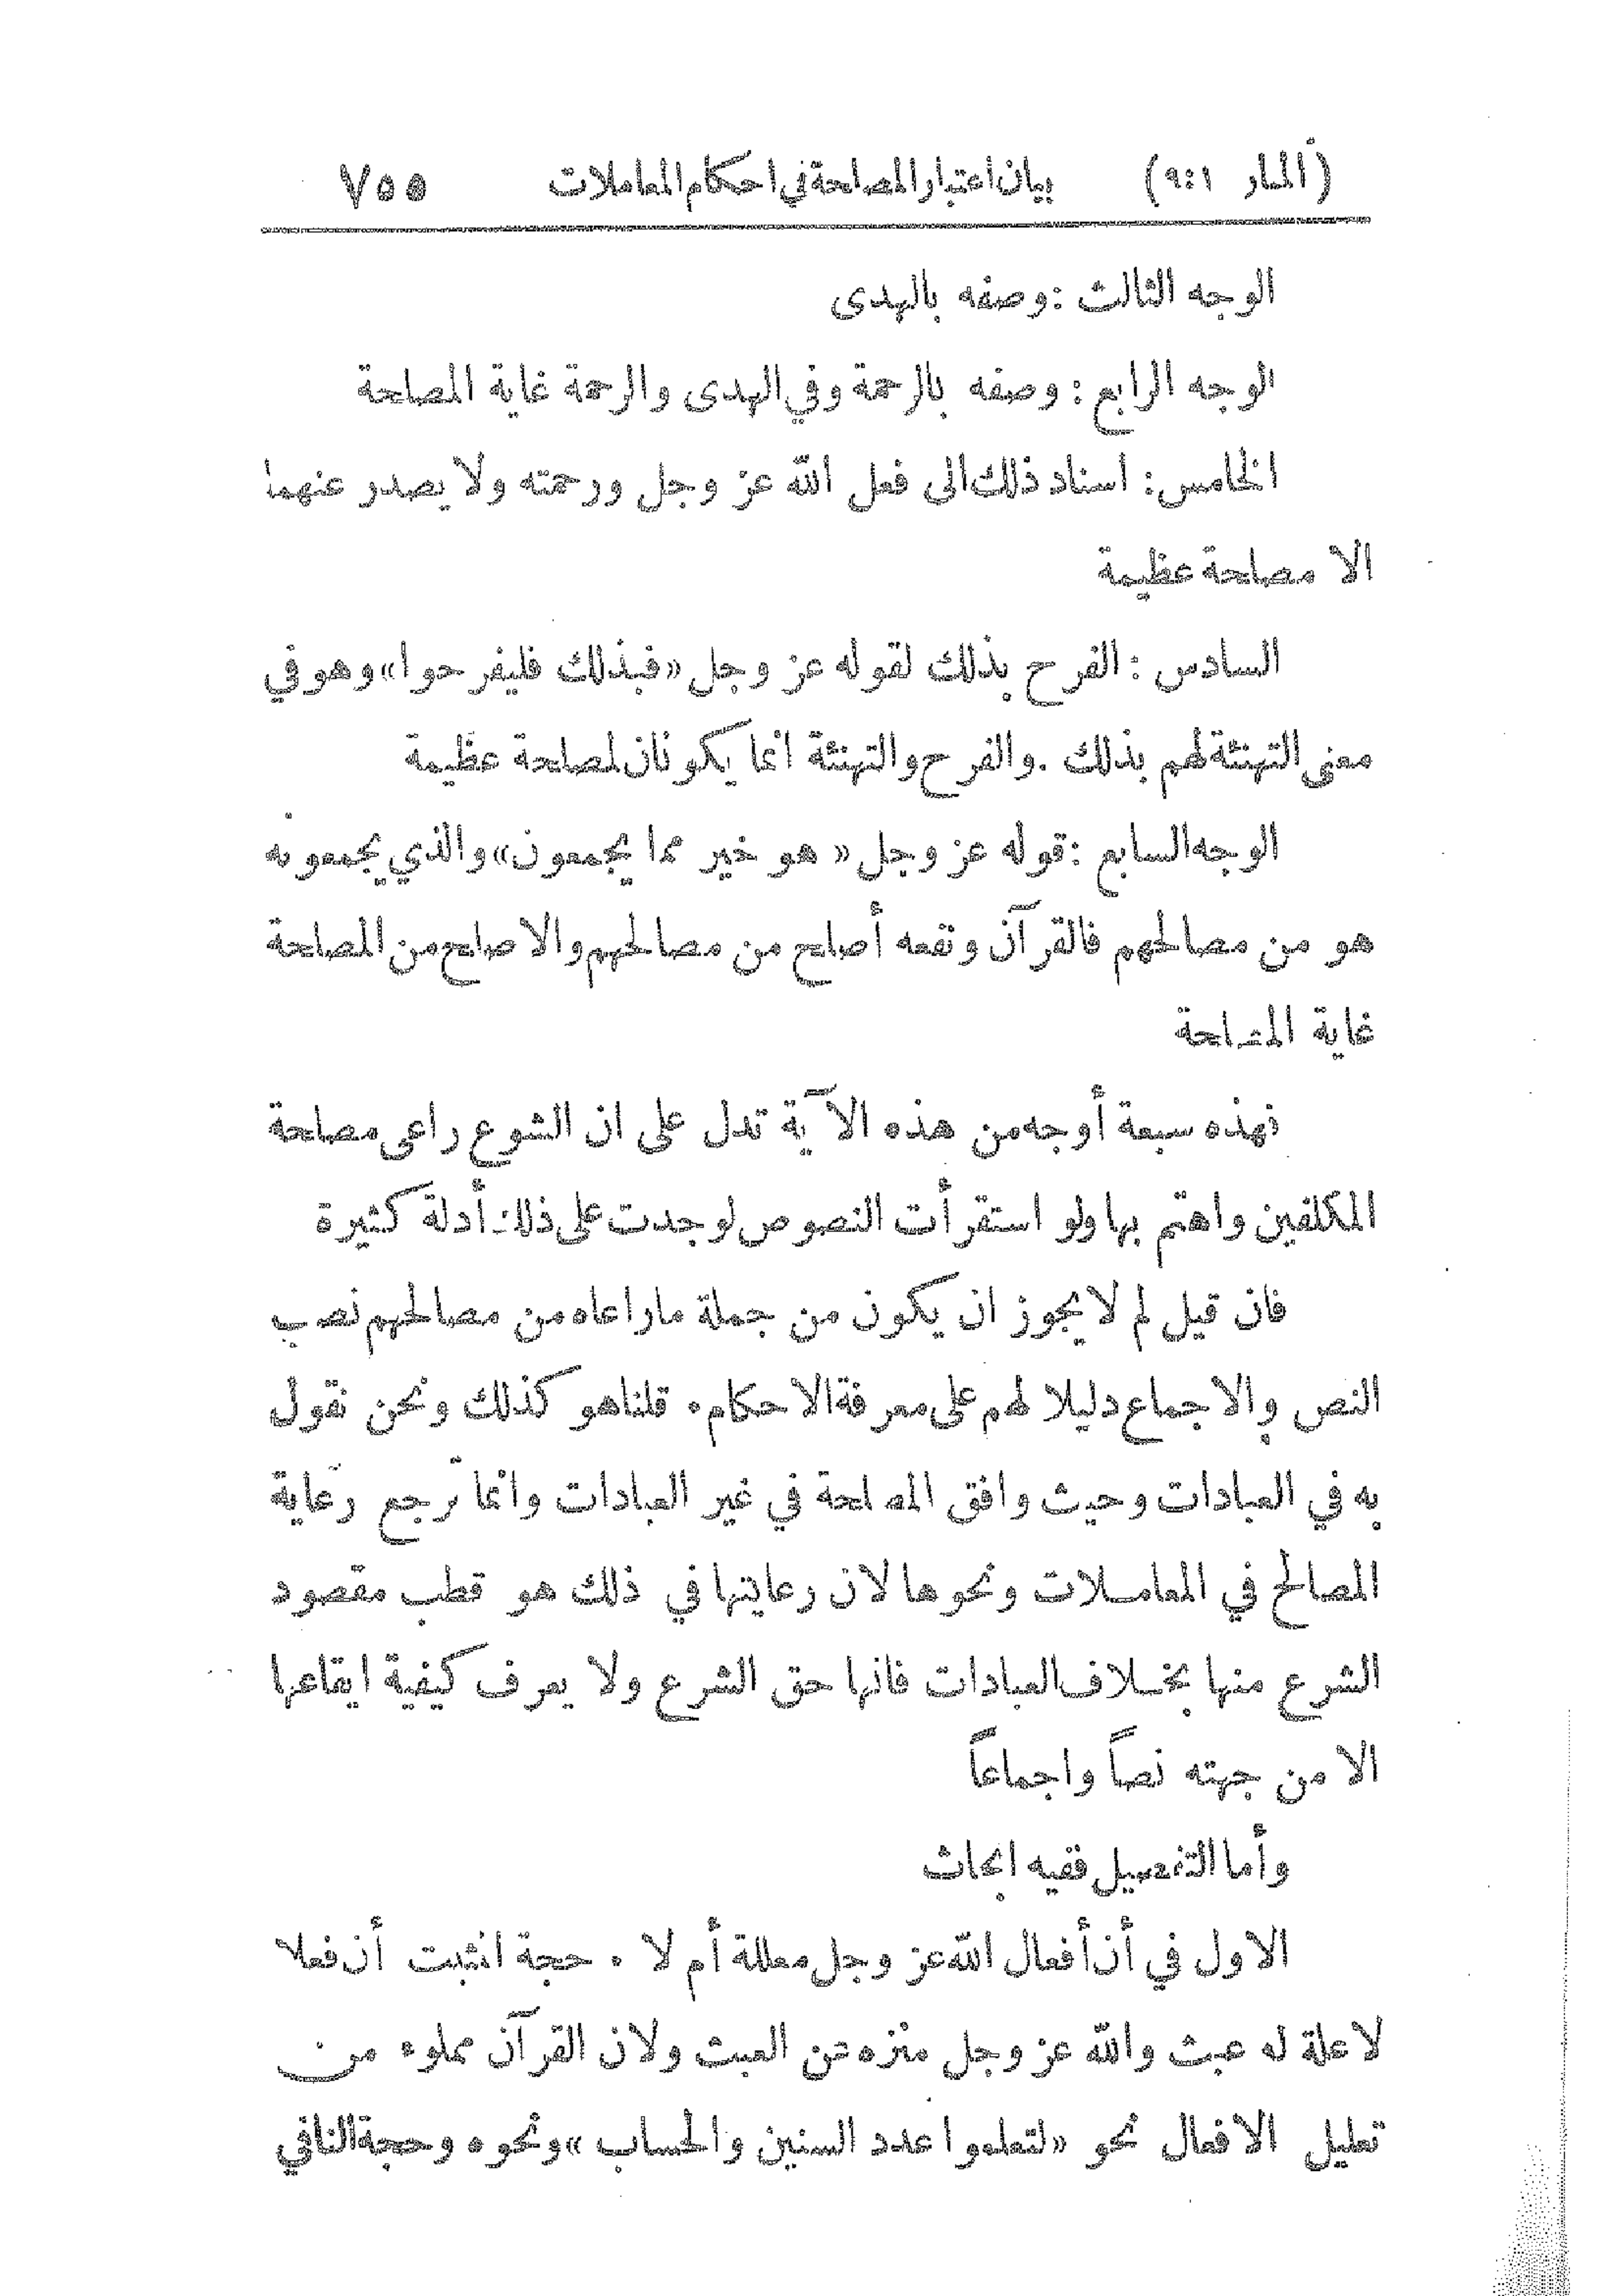 (المنار ٩:١) بيان اعتبار المصلحة في احكام المعاملات ٧٥٥
الوجه الثالث : وصفه بالهدى
الوجه الرابع : وصفه بالرحمة وفي الهدى والرحمة غاية المصلحة
الخامس : اسناد ذلك الى فعل الله عز وجل ورحمته ولا يصدر عنهما
الا مصلحة عظيمة
السادس : الفرح بذلك لقوله عز وجل «فبذلك فليفرحوا» وهو في
معنى التهنئة لهم بذلك . والفرح والتهنئة انما يكونان لمصلحة عظيمة
الوجه السابع : قوله عز وجل « هو خير مما يجمعون» والذي يجمعونه
هو من مصالحهم فالقرآن ونفعه أصلح من مصالحهم والاصلح من المصلحة
غاية المصلحة
فهذه سبعة أوجه من هذه الآية تدل على ان الشرع راعى مصلحة
المكلفين واهتم بها ولو استقرأت النصوص لوجدت على ذلك أدلة كثيرة
فان قيل لم لا يجوز ان يكون من جملة ما راعاه من مصالحهم نصب
النص والاجماع دليلا لهم على معرفة الاحكام . قلنا هو كذلك ونحن نقول
به في العبادات وحيث وافق المصلحة في غير العبادات وانما ترجع رعاية
المصالح في المعاملات ونحوها لان رعايتها في ذلك هو قطب مقصود
الشرع منها بخلاف العبادات فانها حق الشرع ولا يعرف كيفية ايقاعها
الا من جهته نصاً واجماعاً
وأما التفصيل ففيه ابحاث
الاول في أن أفعال الله عز وجل معللة أم لا . حجة المثبت أن فعلا
لا علة له عبث والله عز وجل منزه عن العبث ولان القرآن مملوء من
تعليل الافعال نحو «لتعلموا عدد السنين والحساب» ونحوه وحجة النافي